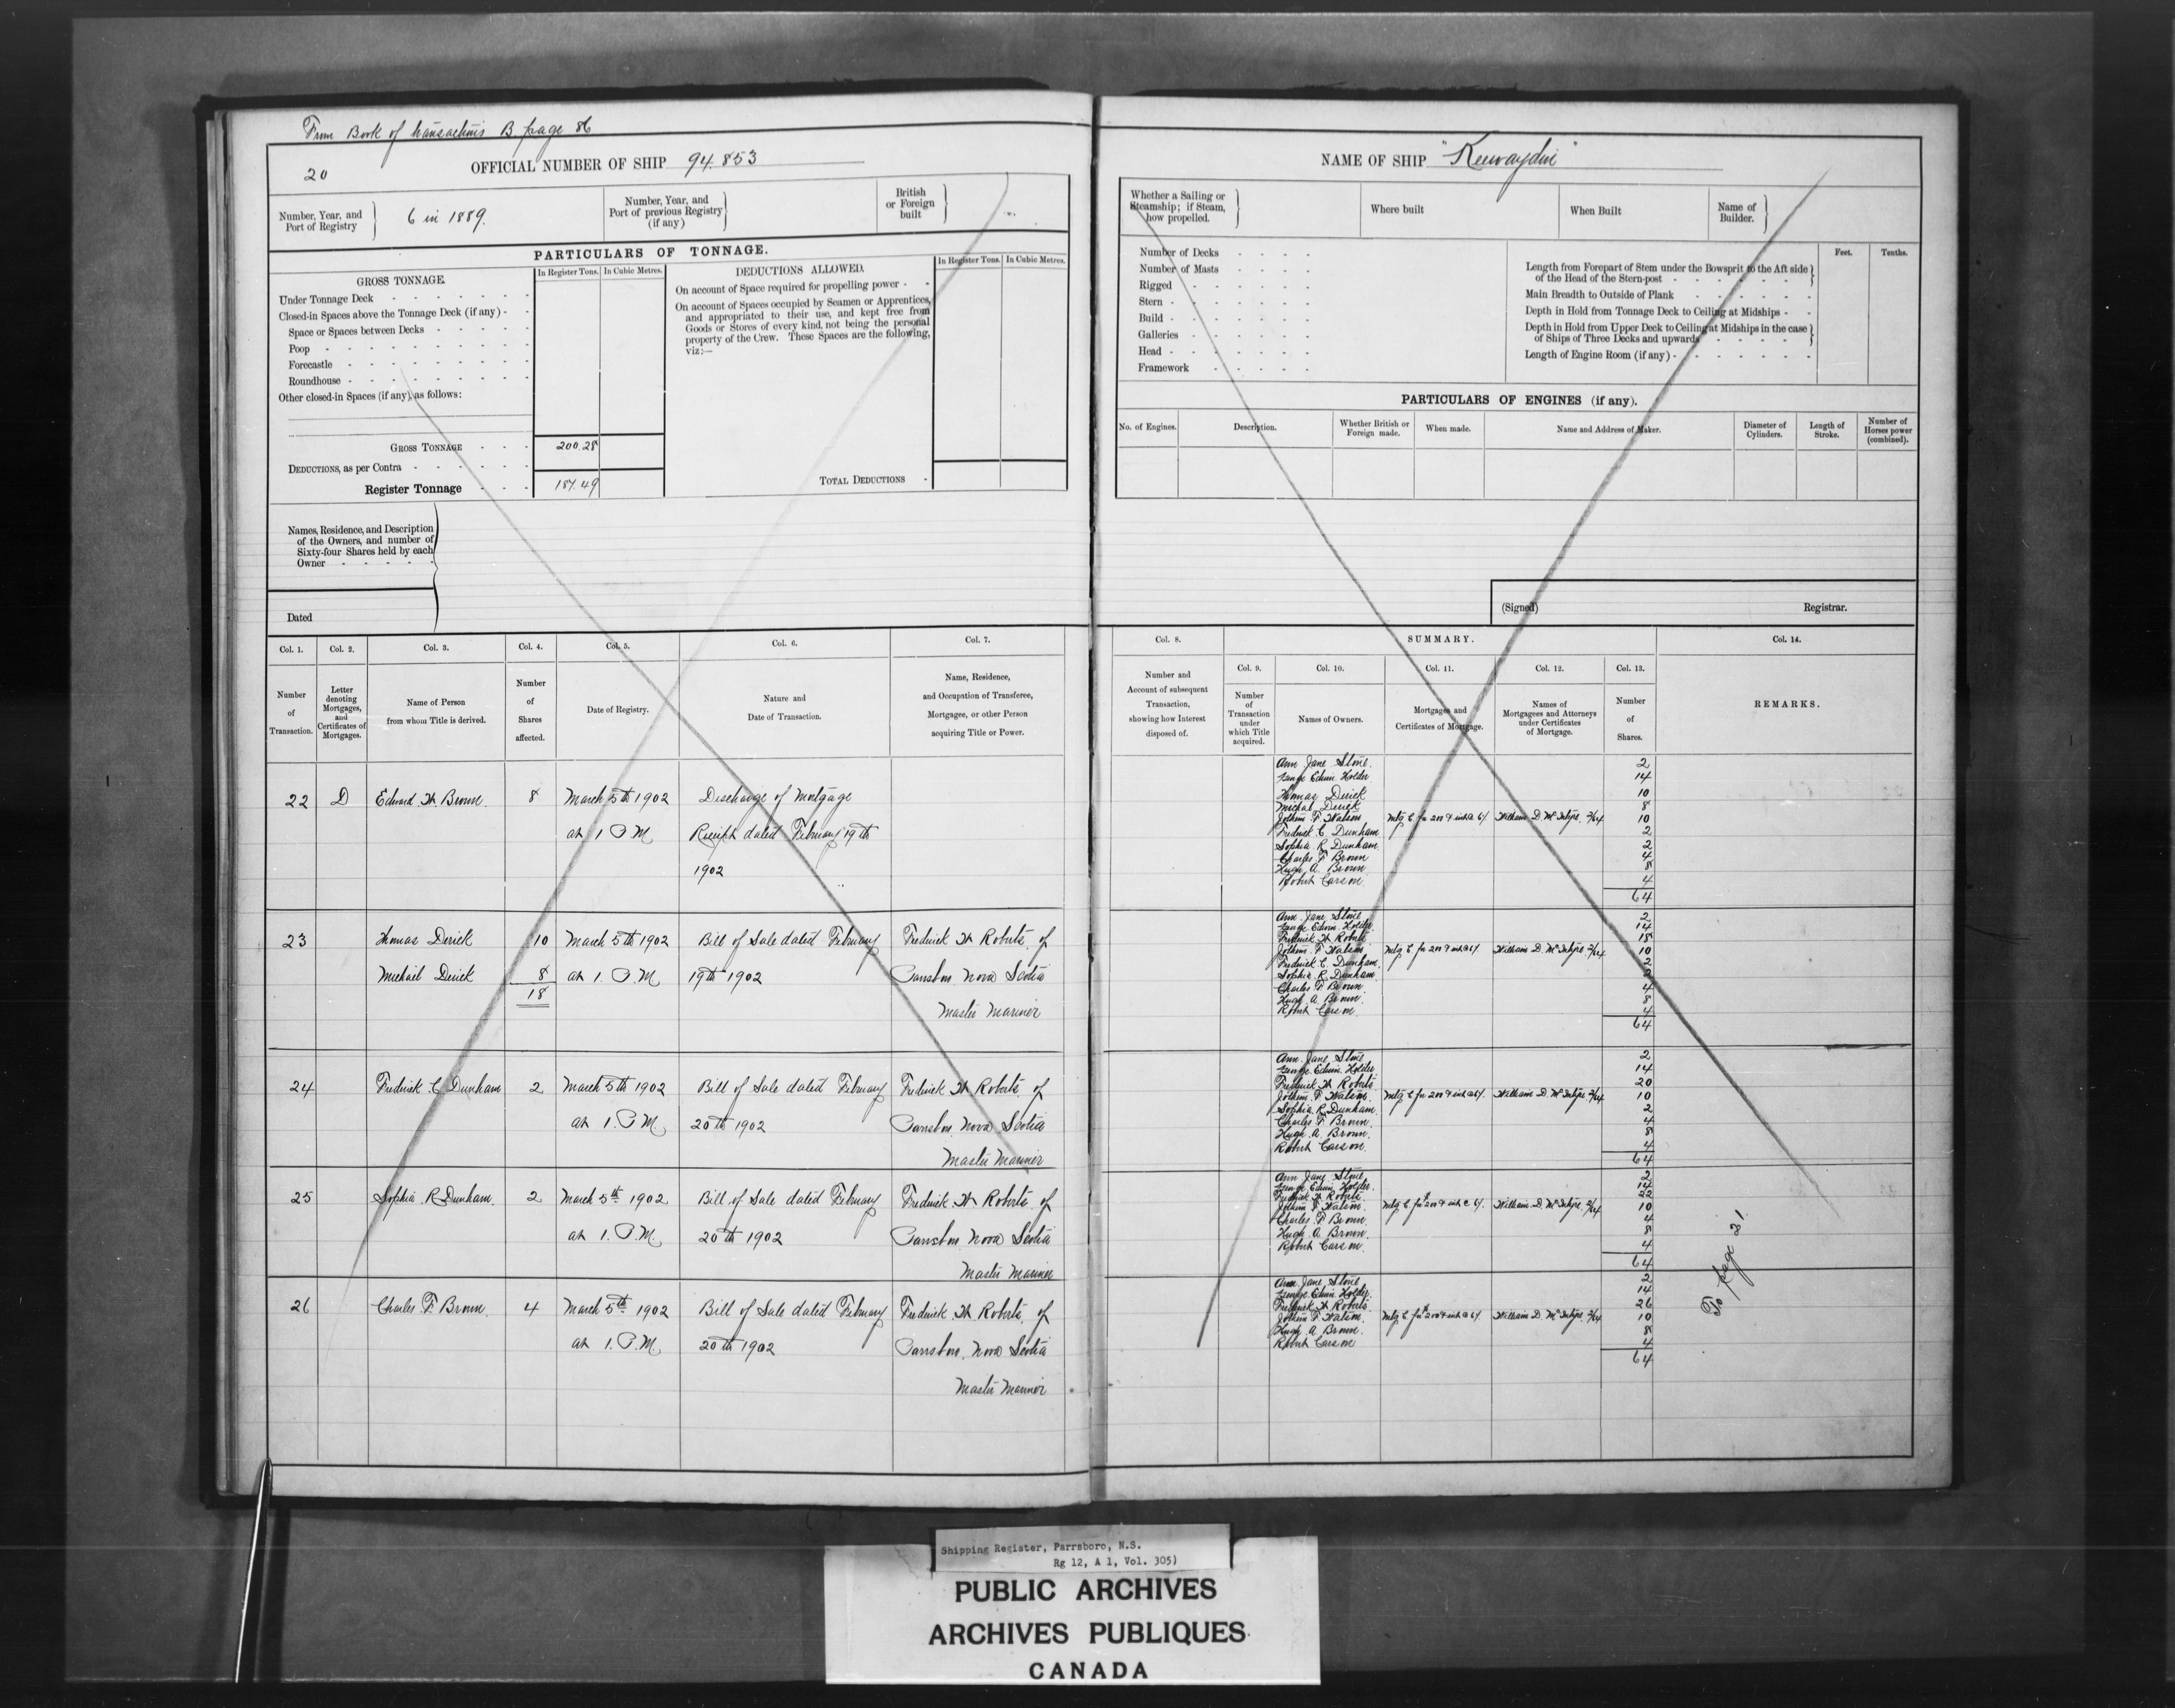 From Book of transactions B page 86
20
OFFICIAL NUMBER OF SHIP 94.853
Number, Year, and Port of Registry
6 in 1889.
Number, Year, and Port of previous Registry (if any)
British or Foreign built
PARTICULARS OF TONNAGE.
GROSS TONNAGE.
In Register Tons. In Cubic Metres.
DEDUCTIONS ALLOWED.
In Register Tons. In Cubic Metres.
Under Tonnage Deck
Closed-in Spaces above the Tonnage Deck (if any)
Space or Spaces between Decks
Poop
Forecastle
Roundhouse
Other closed-in Spaces (if any), as follows:
On account of Space required for propelling power
On account of Spaces occupied by Seamen or Apprentices,
and appropriated to their use, and kept free from
Goods or Stores of every kind, not being the personal
property of the Crew. These Spaces are the following,
viz:—
GROSS TONNAGE 200.28
DEDUCTIONS, as per Contra
Register Tonnage 187.49
TOTAL DEDUCTIONS
Names, Residence, and Description
of the Owners, and number of
Sixty-four Shares held by each
Owner
Dated
Col. 1. Col. 2. Col. 3. Col. 4. Col. 5. Col. 6. Col. 7.
Number of Transaction.
Letter denoting Mortgages, and Certificates of Mortgages.
Name of Person from whom Title is derived.
Number of Shares affected.
Date of Registry.
Nature and Date of Transaction.
Name, Residence, and Occupation of Transferee, Mortgagee, or other Person acquiring Title or Power.
22 D Edward H. Brown. 8 March 5th 1902 Discharge of Mortgage
at 1 P.M. Receipt dated February 19th
1902
23 Thomas Derick 10 March 5th 1902 Bill of Sale dated February Frederick H Roberts of
Michael Derick 8 at 1. P.M. 19th 1902 Parrsboro Nova Scotia
18 Master Mariner
24 Frederick C. Dunham 2 March 5th 1902 Bill of Sale dated February Frederick H Roberts of
at 1. P.M. 20th 1902 Parrsboro. Nova Scotia
Master Mariner
25 Sophia R Dunham. 2 March 5th 1902 Bill of Sale dated February Frederick H Roberts. of
at 1. P.M. 20th 1902 Parrsboro. Nova Scotia
Master Mariner
26 Charles F. Brown. 4 March 5th 1902 Bill of Sale dated February Frederick H Roberts. of
at 1. P.M. 20th 1902 Parrsboro. Nova Scotia
Master Mariner
NAME OF SHIP "Keewaydin"
Whether a Sailing or Steamship; if Steam, how propelled.
Where built
When Built
Name of Builder.
Number of Decks
Number of Masts
Rigged
Stern
Build
Galleries
Head
Framework
Feet. Tenths.
Length from Forepart of Stem under the Bowsprit to the Aft side
of the Head of the Stern-post
Main Breadth to Outside of Plank
Depth in Hold from Tonnage Deck to Ceiling at Midships
Depth in Hold from Upper Deck to Ceiling at Midships in the case
of Ships of Three Decks and upwards
Length of Engine Room (if any)
PARTICULARS OF ENGINES (if any).
No. of Engines.
Description.
Whether British or Foreign made.
When made.
Name and Address of Maker.
Diameter of Cylinders.
Length of Stroke.
Number of Horses power (combined).
(Signed) Registrar.
Col. 8. SUMMARY. Col. 14.
Col. 9. Col. 10. Col. 11. Col. 12. Col. 13.
Number and Account of subsequent Transaction, showing how Interest disposed of.
Number of Transaction under which Title acquired.
Names of Owners.
Mortgages and Certificates of Mortgage.
Names of Mortgagees and Attorneys under Certificates of Mortgage.
Number of Shares.
REMARKS.
Ann Jane Stone. 2
George Edwin Holder 14
Thomas Derick 10
Michal Derick 8
Jothim F Watson Mtg C for 200 & int @ 6% William D. McIntyre. 2/64 10
Fredrick C Dunham 2
Sophia R Dunham 2
Charles F Brown 4
Hugh A. Brown. 8
Robert Carson 4
64
Ann Jane Stone 2
George Edwin Holder 14
Fredrick H Roberts 18
Jothim F Watson Mtg C for 200 & int @ 6% William D. McIntyre 2/64 10
Fredrick C. Dunham. 2
Sophia R Dunham 2
Charles F Brown. 4
Hugh A. Brown. 8
Robert Carson 4
64
Ann Jane Stone 2
George Edwin Holder. 14
Fredrick H Roberts. 20
Jothim F Watson. Mtg C for 200 & int @ 6%. William D. McIntyre 2/64 10
Sophia R Dunham. 2
Charles F Brown. 4
Hugh A. Brown. 8
Robert Carson. 4
64
Ann Jane Stone. 2
George Edwin Holder. 14
Fredrick H Roberts. 22
Jothim F Watson. Mtg C for 200 & int @ 6%. William D. McIntyre. 2/64 10
Charles F Brown. 4
Hugh A. Brown. 8
Robert Carson. 4
64
Ann Jane Stone 2
George Edwin Holder. 14
Fredrick H Roberts. 26
Jothim F Watson. Mtg C for 200 & int @ 6%. William D McIntyre. 2/64 10
Hugh A. Brown. 8
Robert Carson 4
64
To page 31.
Shipping Register, Parrsboro, N.S.
Rg 12, A 1, Vol. 305)
PUBLIC ARCHIVES
ARCHIVES PUBLIQUES
CANADA